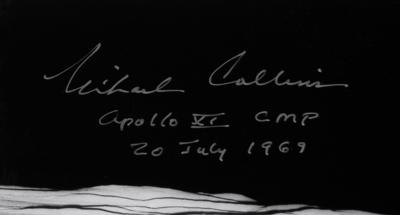 Michael Collins
Apollo XI CMP
20 July 1969